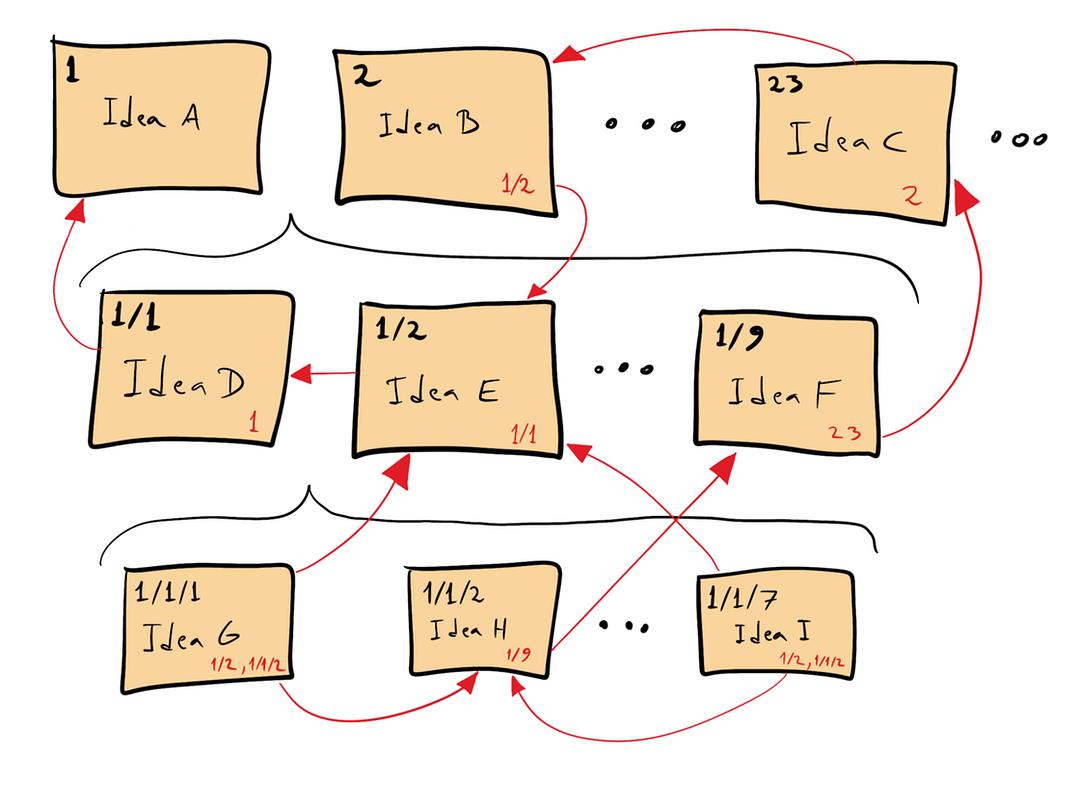 1
Idea A
2
Idea B
1/2
23
Idea C
2
1/1
Idea D
1
1/2
Idea E
1/1
1/9
Idea F
23
1/1/1
Idea G
1/2, 1/1/2
1/1/2
Idea H
1/9
1/1/7
Idea I
1/2, 1/1/2